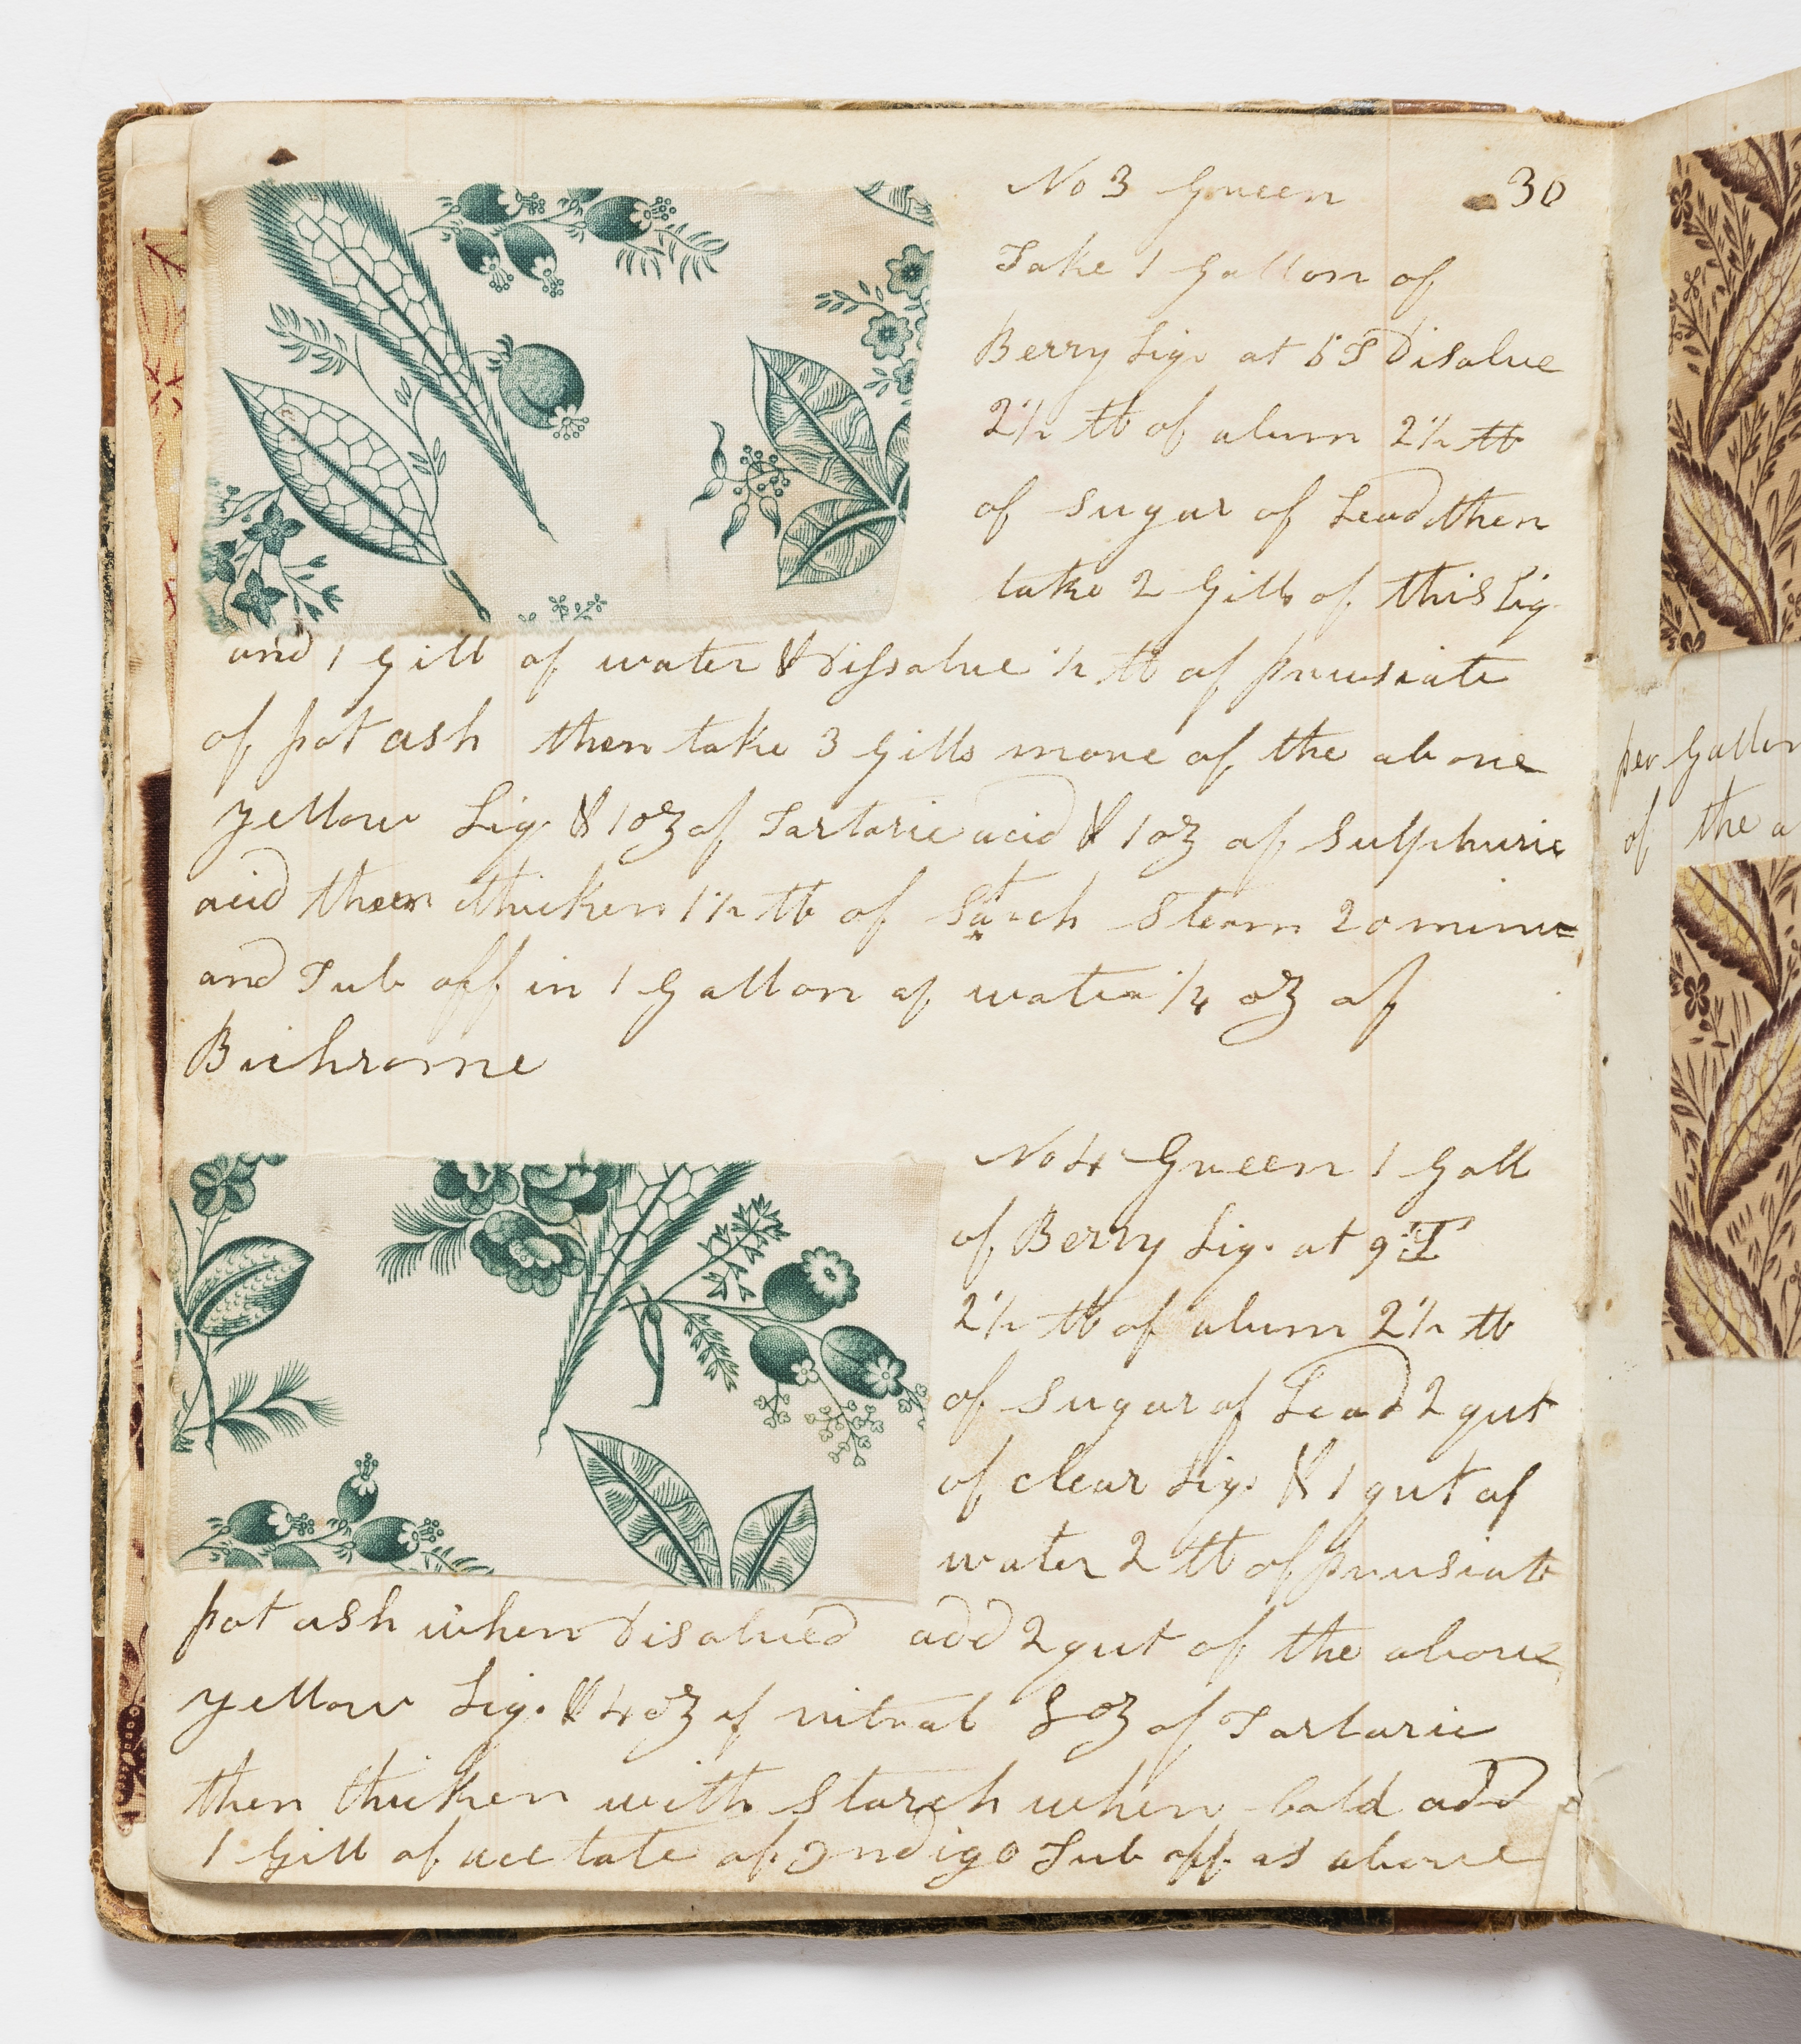 No 3 Green 30
Take 1 Gallon of
Berry Liq. at 6 T Disolve
2½ lb of alum 2½ lb
of sugar of Lead then
take 2 Gills of this Liq
and 1 Gill of water & Dissolve ½ lb of prusiate
of pot ash then take 3 Gills more of the above
yellow Liq. & 1 oz of Tartaric acid & 1 oz of Sulphuric
acid then thicken 1½ lb of Starch Steam 20 minu=
and Tub off in 1 Gallon of water ¼ oz of
Bichrome
No 4 Green 1 Gall
of Berry Liq. at 9 T
2½ lb of alum 2½ lb
of sugar of Lead 2 qut
of clear Liq. & 1 qut of
water 2 lb of prusiate
pot ash when Disolved add 2 qut of the above
yellow Liq. & 4 oz of nitrat 8 oz of Tartaric
then thicken with Starch when Cold add
1 Gill of acetate of Indigo Tub off as above
per Gallon
of the a